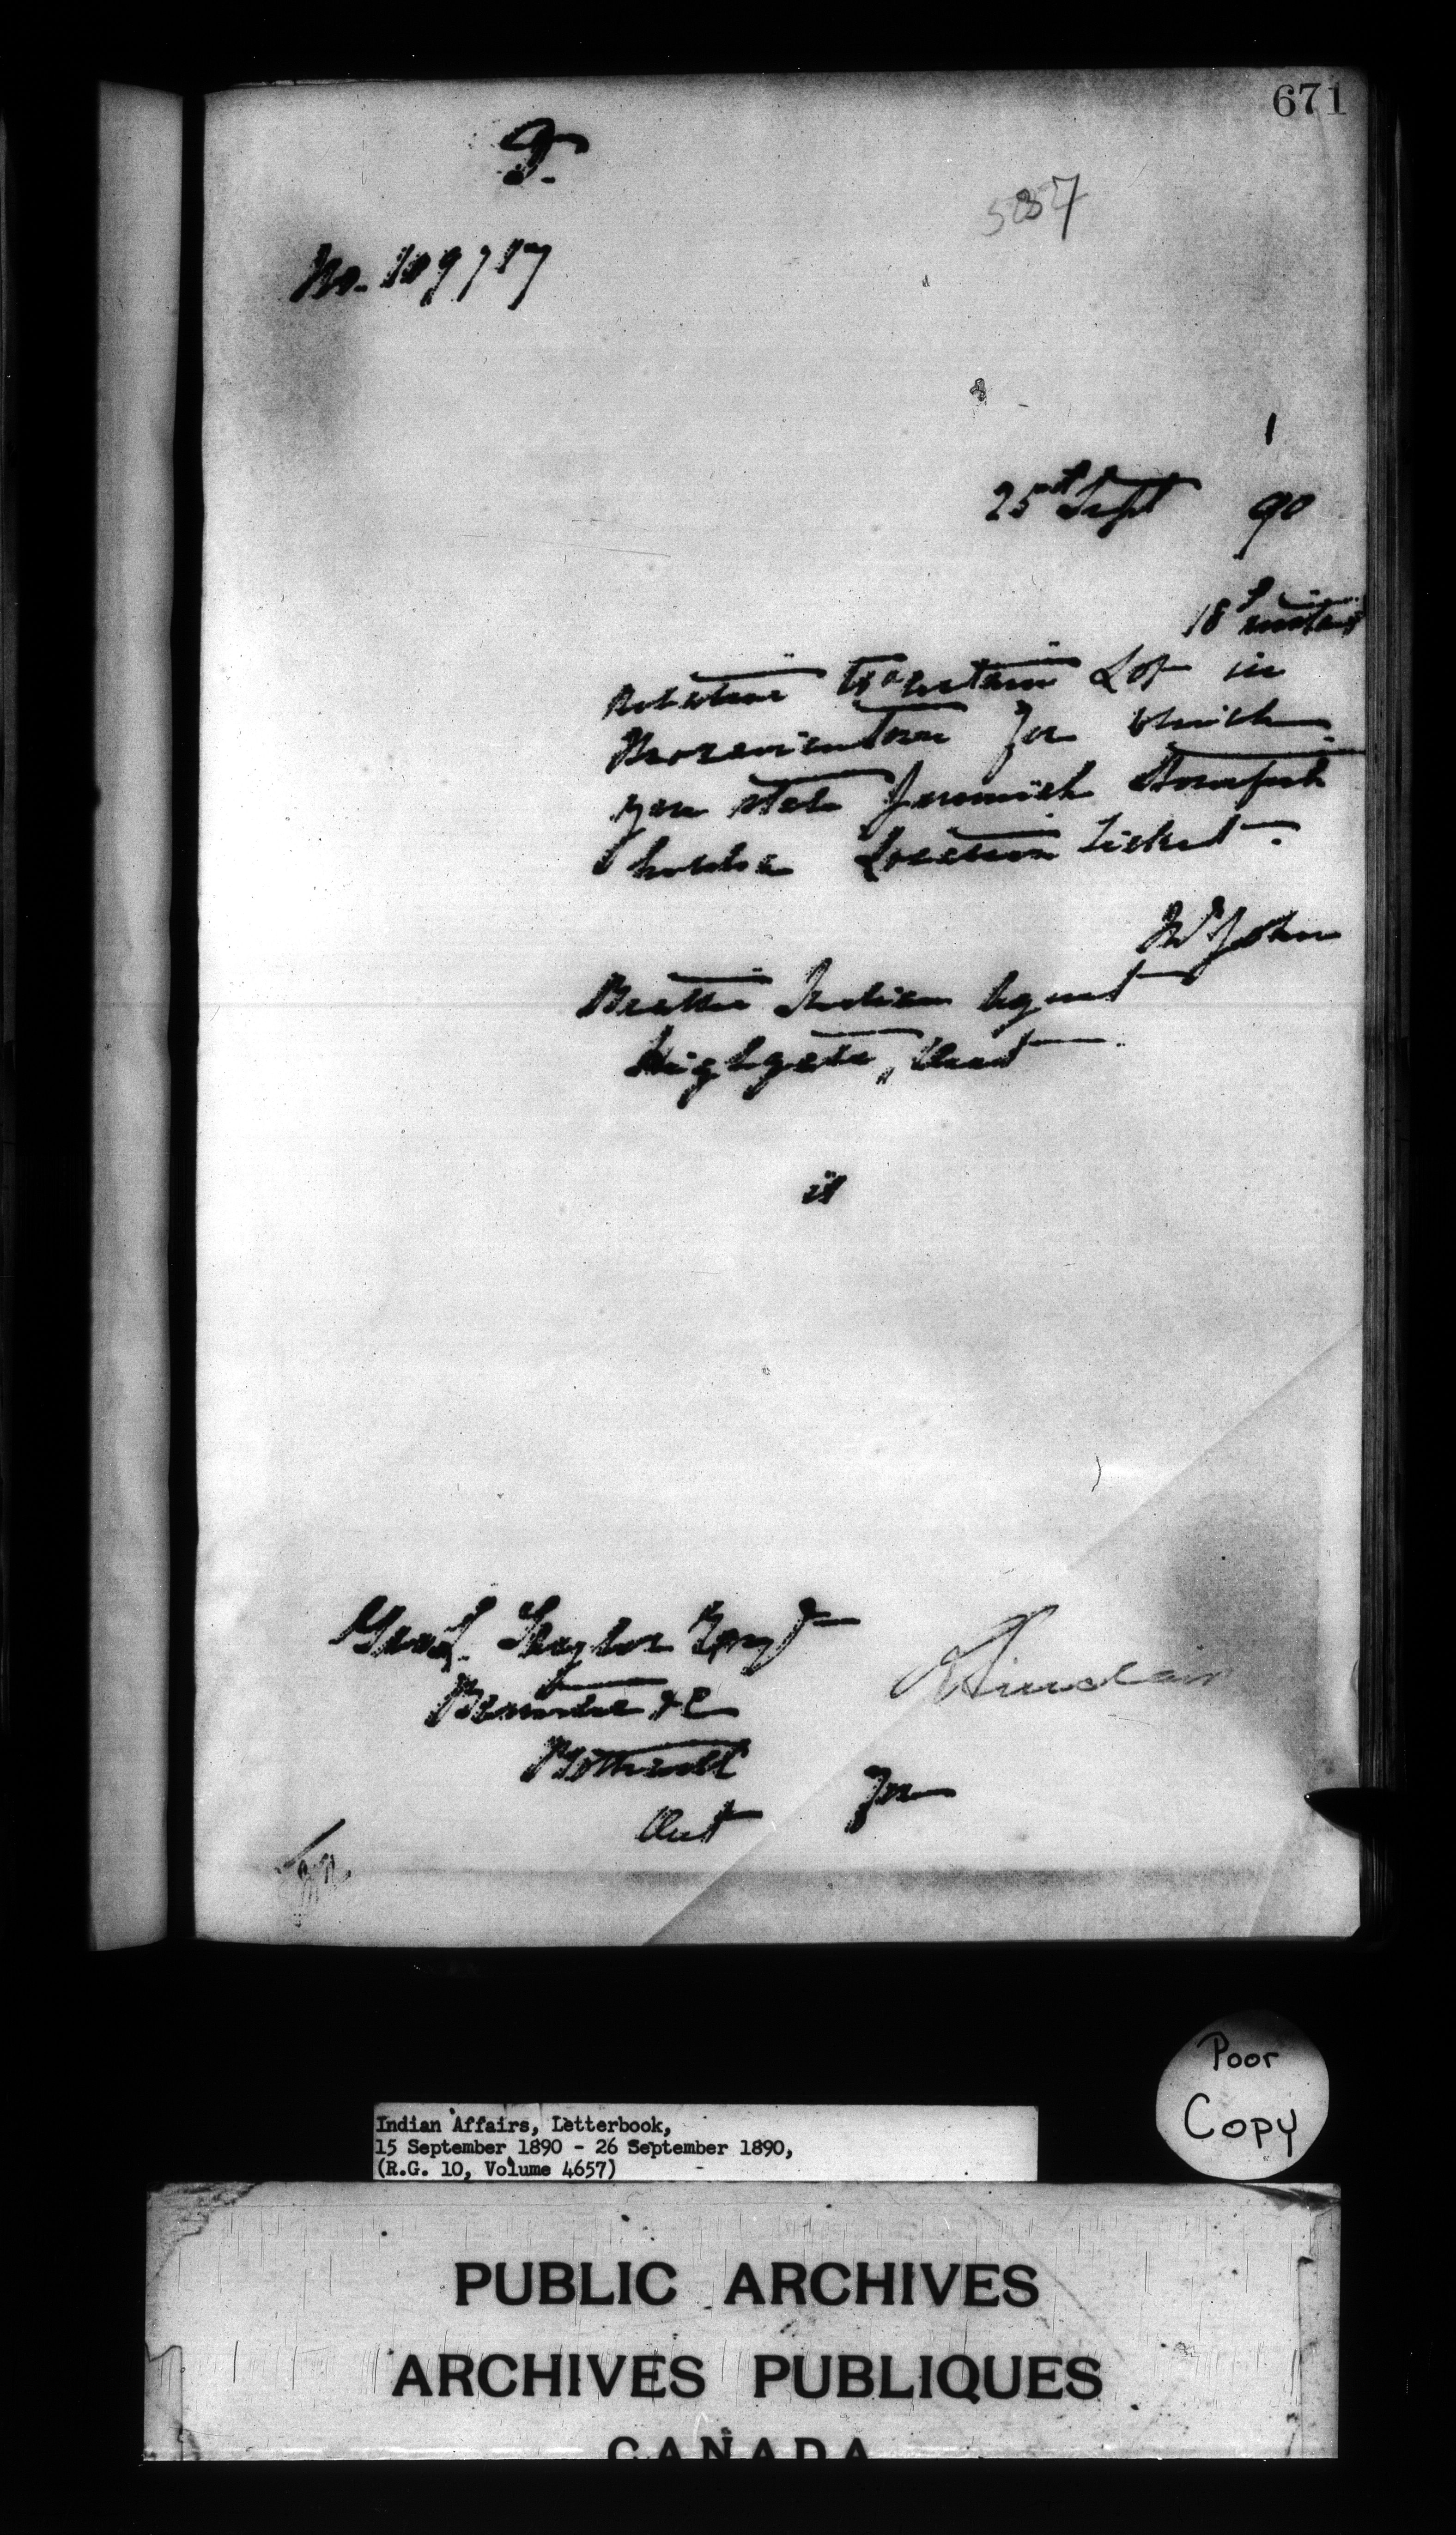 671
587
No. 109757
25th Sept 90
18th instant
relative to a certain Lot in
Moraviantown for which
you state Jeremiah Stonefish
holds a Location Ticket.
Mr John
Beattie Indian Agent
Highgate, Ont
it
Taylor Esqr
Barrister &c
Bothwell
Ont for
Sinclair
Poor
Copy
Indian Affairs, Letterbook,
15 September 1890 - 26 September 1890,
(R.G. 10, Volume 4657)
PUBLIC ARCHIVES
ARCHIVES PUBLIQUES
CANADA